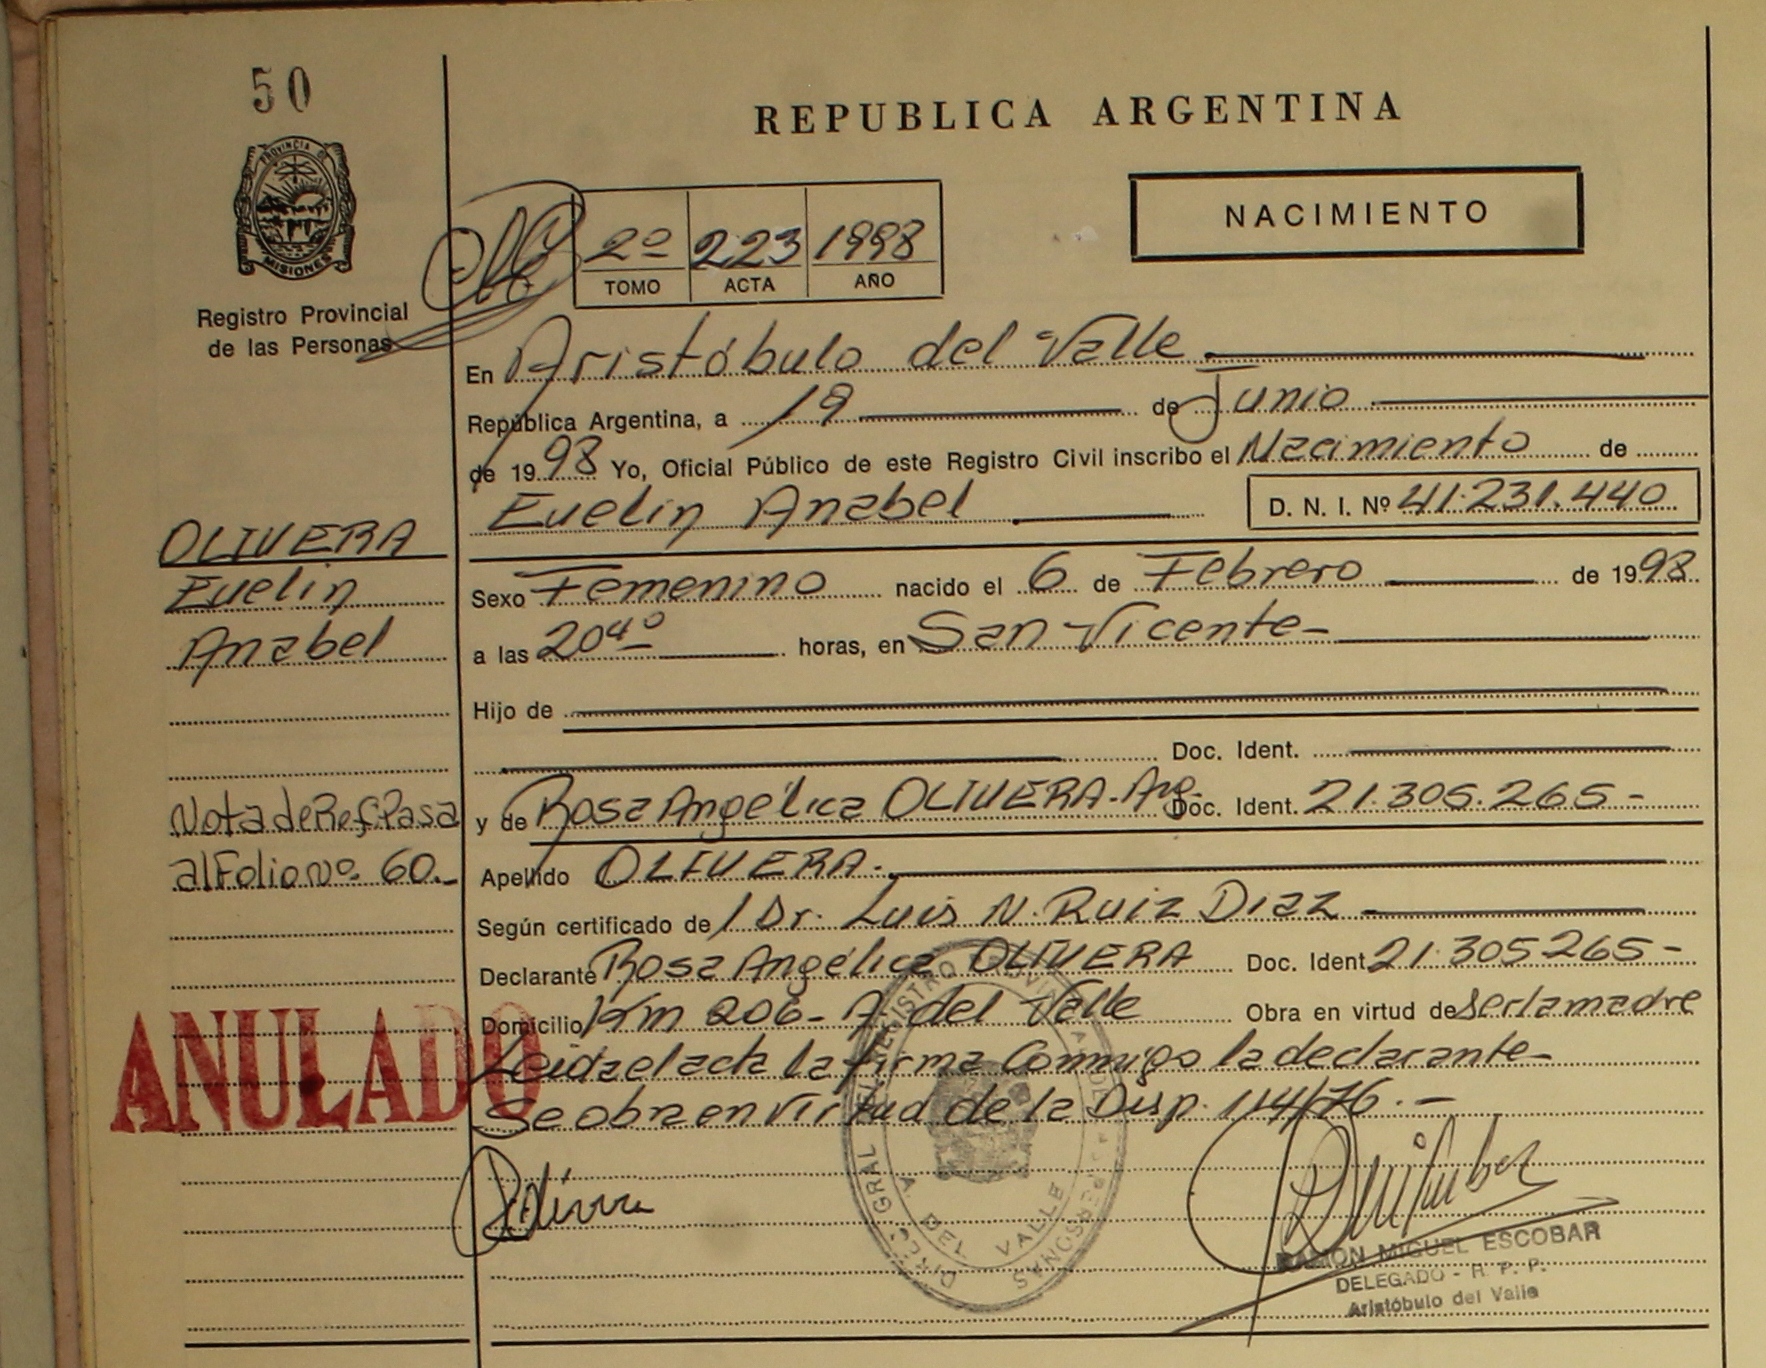 50
REPUBLICA ARGENTINA
PROVINCIA DE
MISIONES
Registro Provincial
de las Personas
NACIMIENTO
2º 223 1998
TOMO ACTA AÑO
En Aristóbulo del Valle
República Argentina, a 19 de Junio
de 1998 Yo, Oficial Público de este Registro Civil inscribo el Nacimiento de
Evelin Anabel D. N. I. Nº 41.231.440
OLIVERA
Evelin
Anabel
Sexo Femenino nacido el 6 de Febrero de 1998
a las 20⁴⁰ horas, en San Vicente-
Hijo de
Doc. Ident.
Nota de Ref. Pasa
al Folio Nº 60.-
y de Rosa Angélica OLIVERA-Arg. Doc. Ident. 21.305.265-
Apellido OLIVERA.
Según certificado de l Dr. Luis N. Ruiz Diaz
Declarante Rosa Angélica OLIVERA Doc. Ident. 21.305265-
Domicilio Km 206- A. del Valle Obra en virtud de ser la madre
ANULADO
Leida el acta la firma Conmigo la declarante-
Se obra en virtud de la Disp. 114/76.-
Olivera
DIREC. GRAL DEL REGISTRO PROVINCIAL DE LAS PERSONAS
A. DEL VALLE
RAMÓN MIGUEL ESCOBAR
DELEGADO - R. P. P.
Aristóbulo del Valle